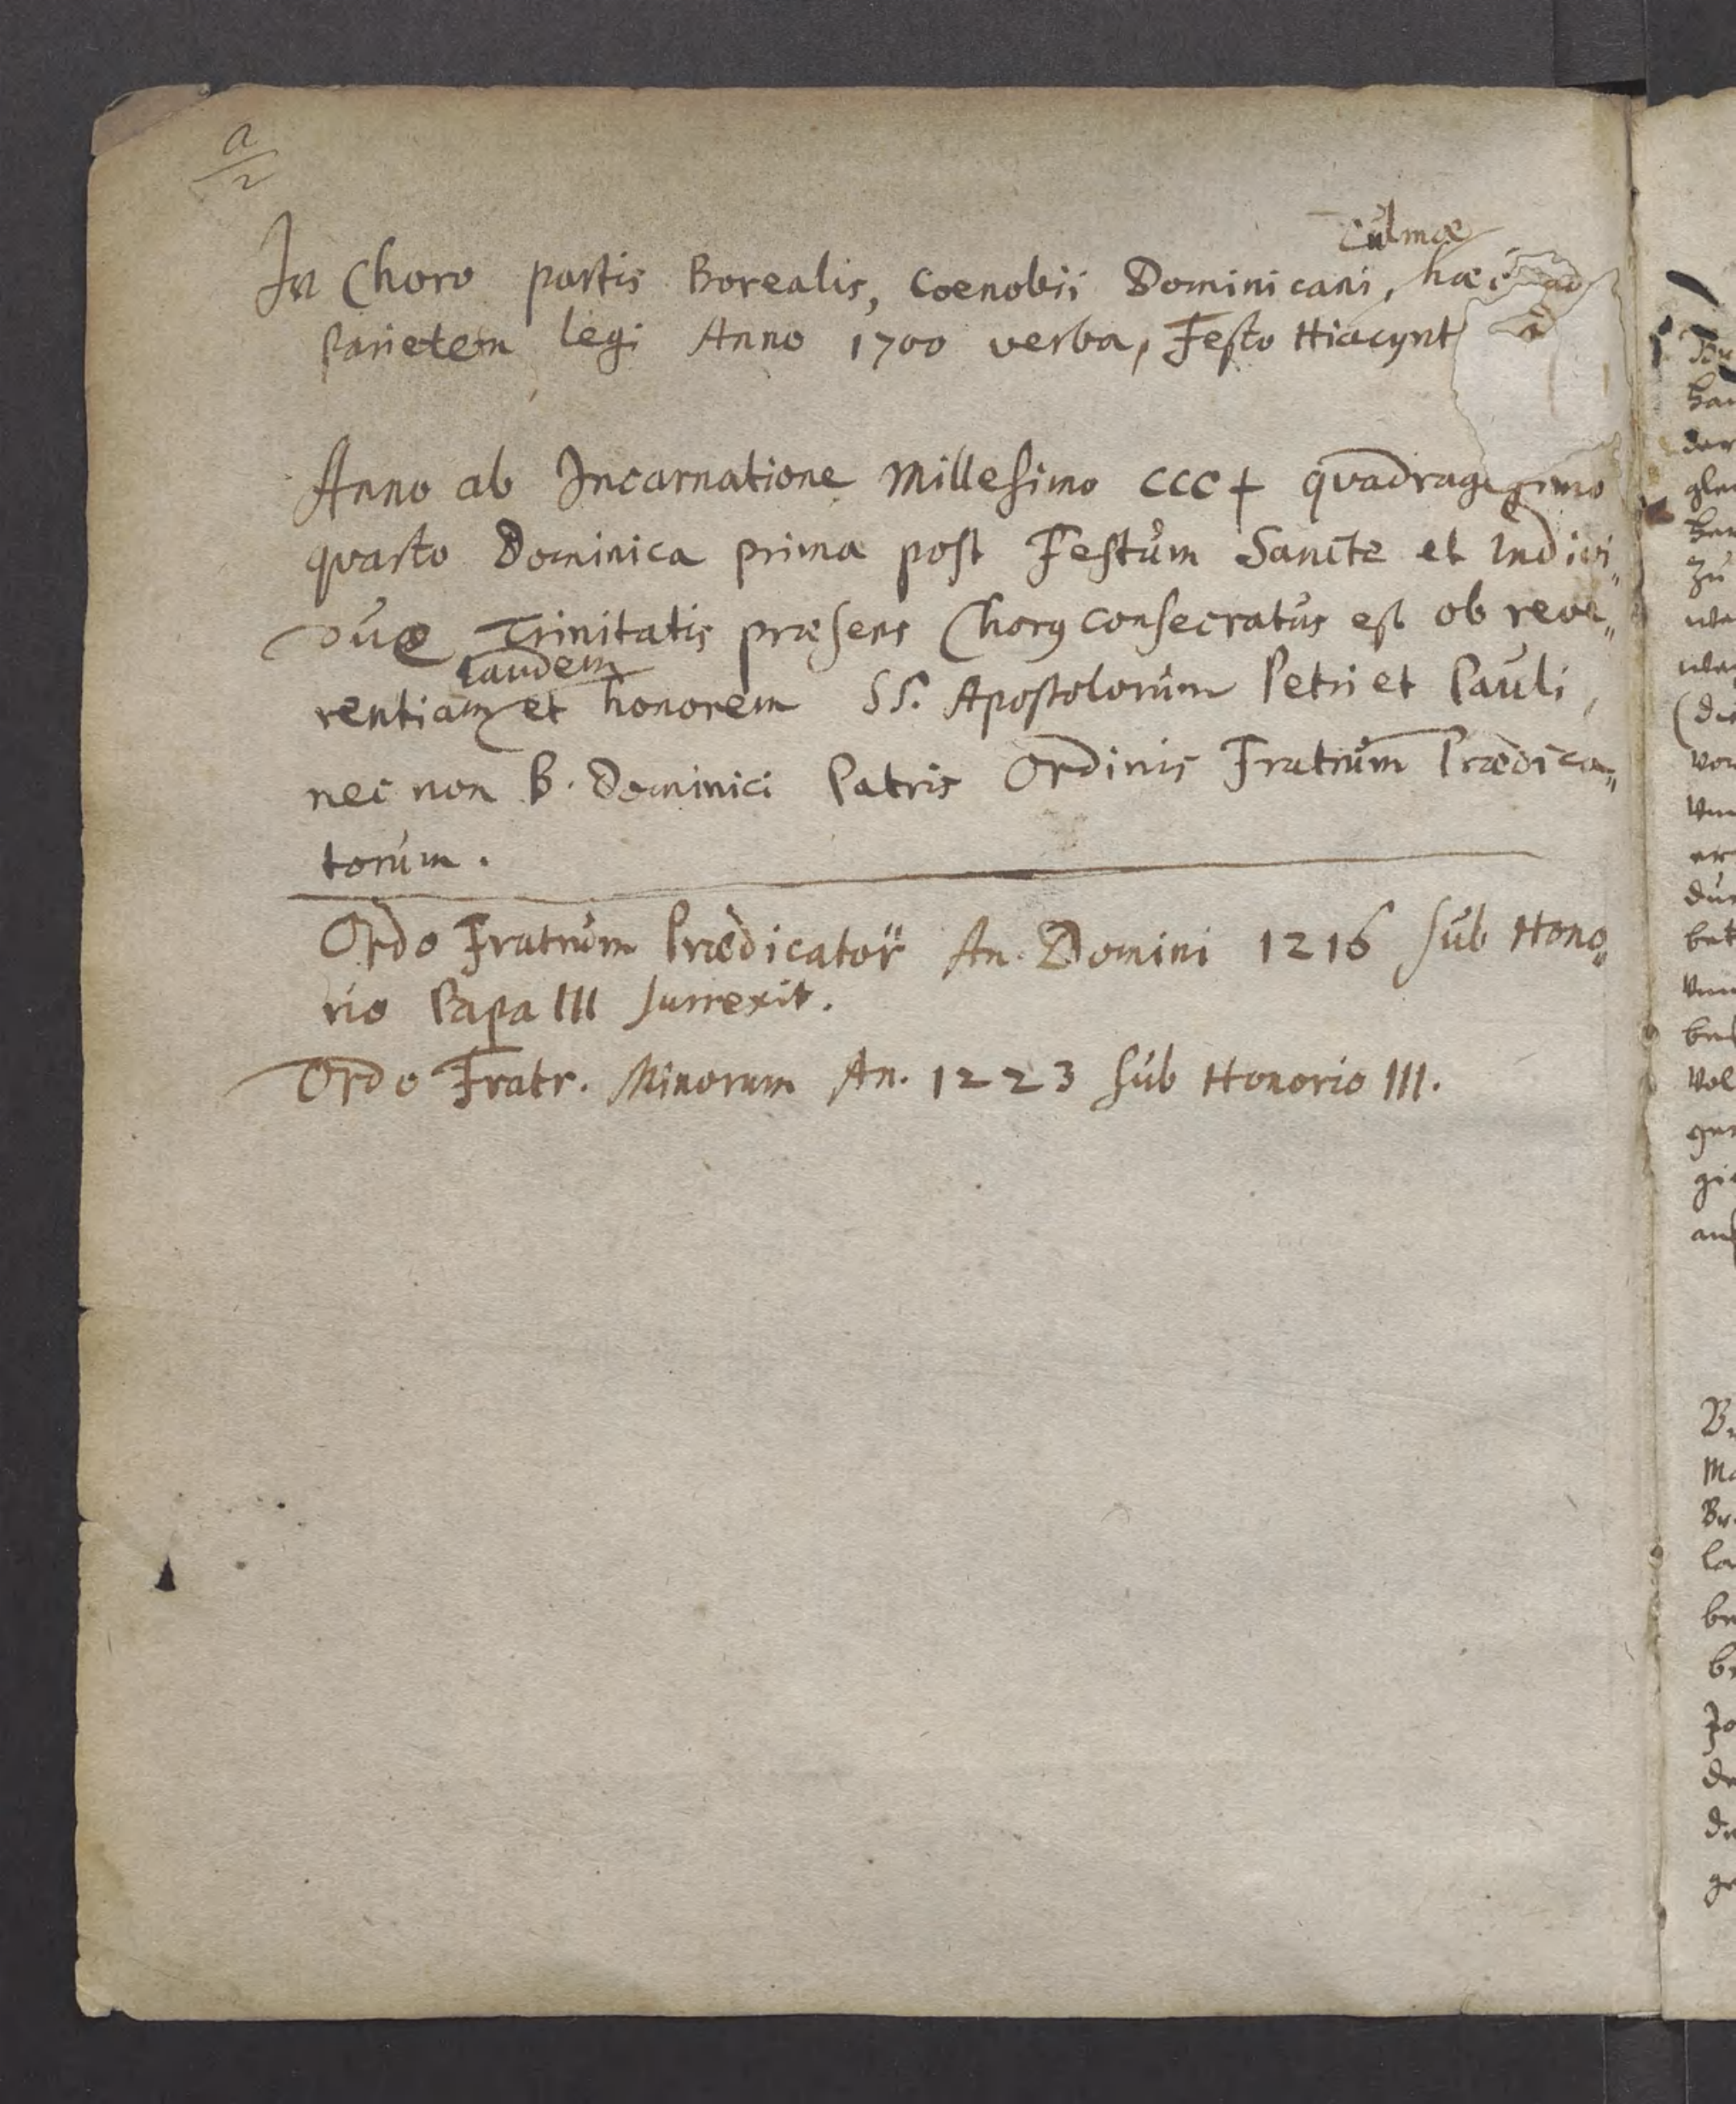 a
2
Culmæ
In Choro partis Borealis, Coenobii Dominicani, hæc ad
parietem legi Anno 1700 verba, Festo Hiacynt
Anno ab Incarnatione Millesimo CCC + quadragesimo
quarto Dominica prima post Festum Sancte et Indivi„
duæ Trinitatis præsens Chorꝰ consecratus est ob reve„
laudem
rentiam et honorem SS. Apostolorum Petri et Pauli,
nec non B. Dominici Patris Ordinis Fratrum Prædica„
torum.
Ordo Fratrum Prædicator An. Domini 1216 sub Hono„
rio Papa III surrexit.
Ordo Fratr. Minorum An. 1223 sub Honorio III.